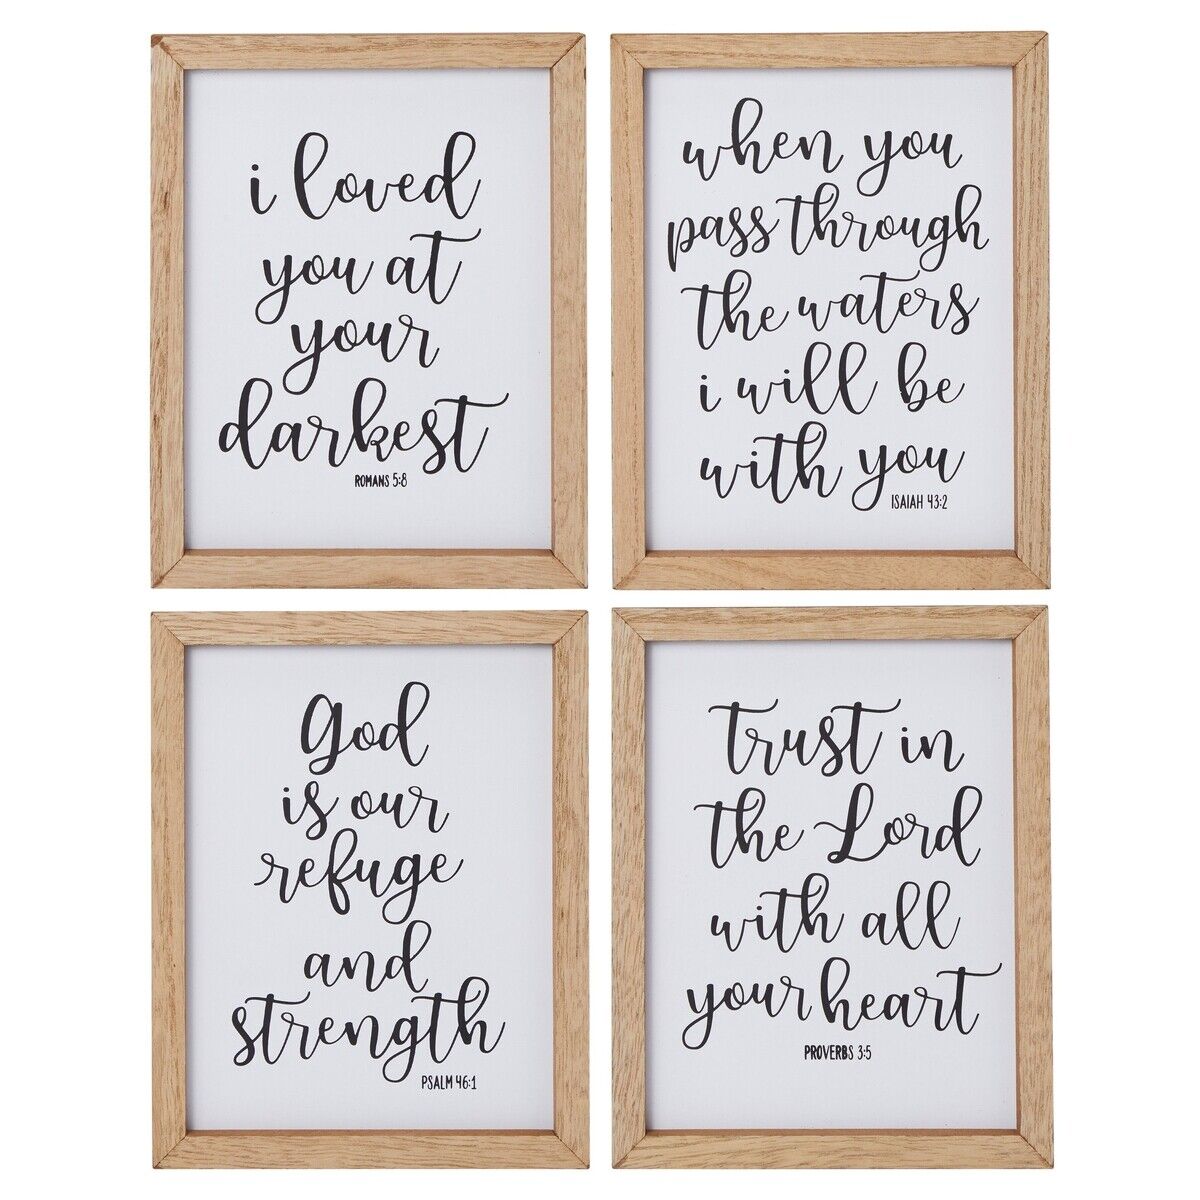 i loved
you at
your
darkest
ROMANS 5:8
when you
pass through
the waters
i will be
with you
ISAIAH 43:2
God
is our
refuge
and
strength
PSALM 46:1
Trust in
the Lord
with all
your heart
PROVERBS 3:5